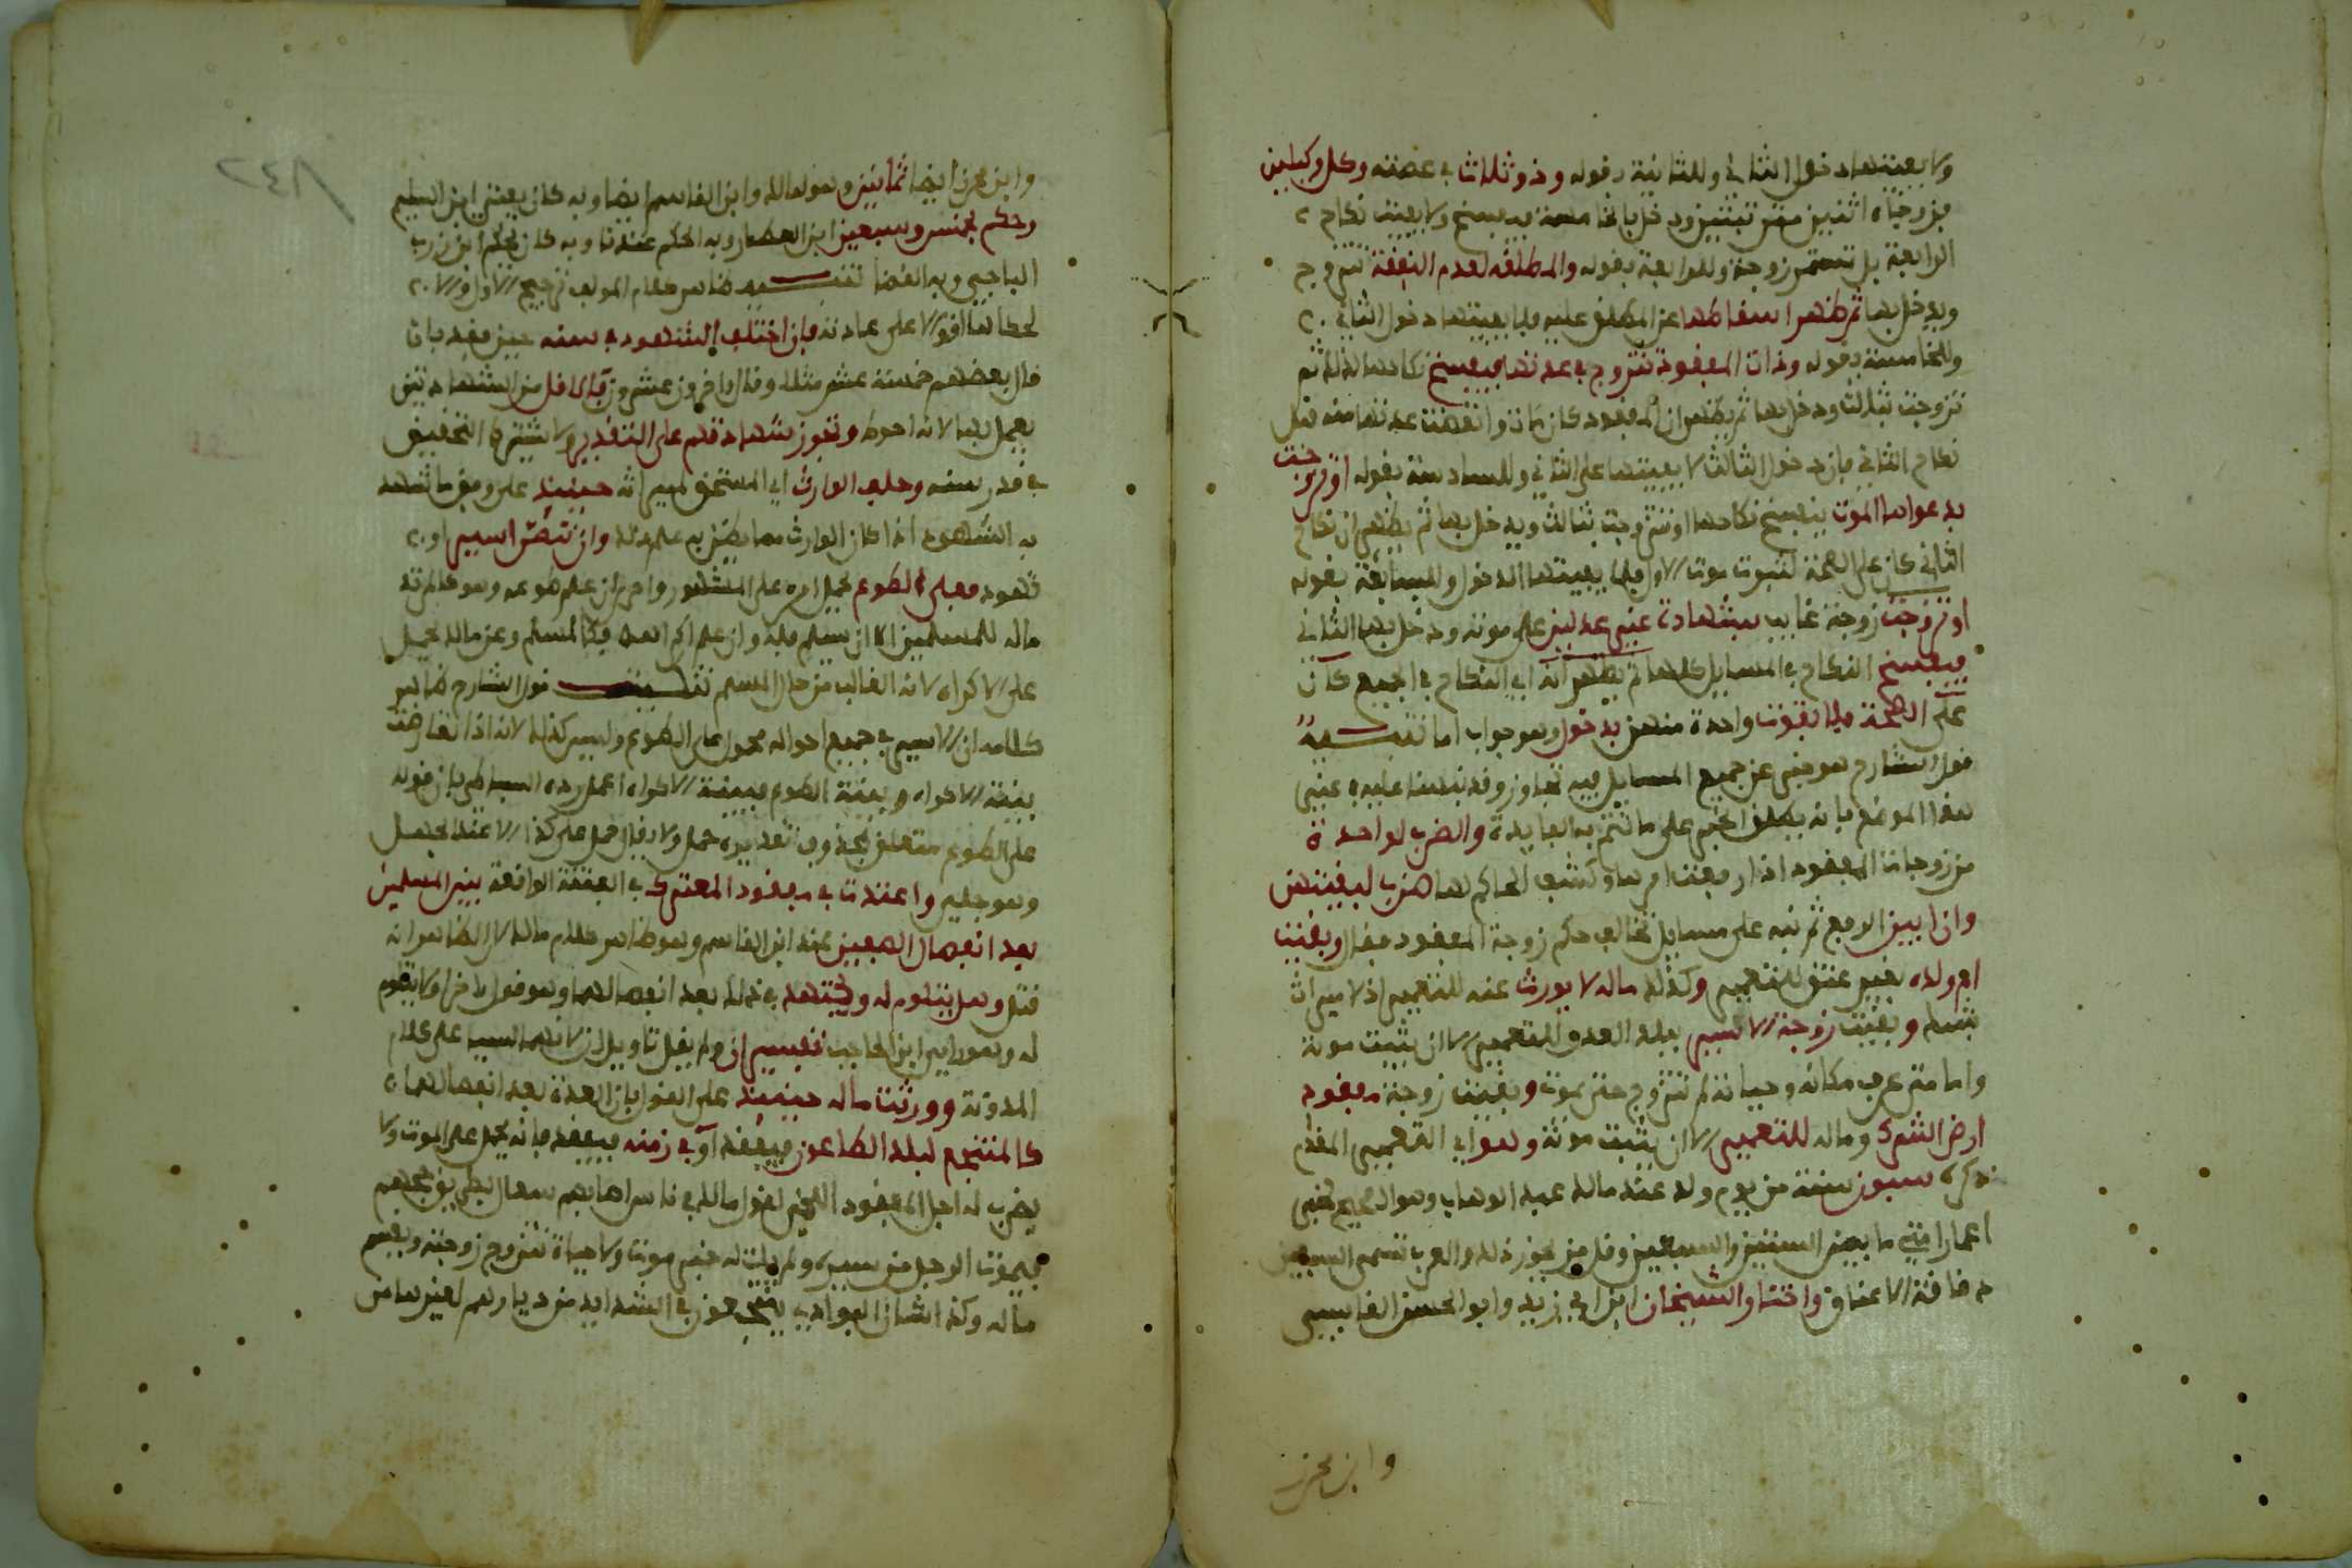 ولا يفيتها دخول الثاني وللثانية بقوله وذو ثلاث في عصمته وكل وكيلين
فزوجاه اثنتين مترتبتين ودخل بالخامسة فيفسخ ولا يفيت نكاح
الرابعة بل تستمر زوجة وللرابعة بقوله والمطلقة لعدم النفقة تتزوج
ويدخل بها ثم ظهر اسقاطها عن المطلق عليه فلا يفيتها دخول الثاني
وللخامسة بقوله وذات المفقود تتزوج في عدتها فيفسخ نكاحها لذلك ثم
تزوجت بثالث ودخل بها ثم يظهر ان المفقود كان مات وانقضت عدتها منه قبل
نكاح الثاني فان دخول الثالث لا يفيتها على الثاني وللسادسة بقوله او تزوجت
بدعواها الموت يفسخ نكاحها او تتزوجت بثالث ويدخل بها ثم يظهر ان نكاح
الثاني كان على الصحة لثبوت موت الاول فلا يفيتها الدخول وللسابعة بقوله
او تزوجت زوجة غايب بشهادة غير عدلين على موته ودخل بها الثاني
فيفسخ النكاح في المسايل كلها ثم يظهر انه اي النكاح في الجميع كان
على الصحة فلا تفوت واحدة منهن بدخول وهو جواب اما تنبيه
قول الشارح هو خبر عن جميع المسايل فيه تجاوز وقد نبهنا عليه في غير
هذا الموضع بانه يطلق الخبر على ما تتم به الفايدة والضرب لواحدة
من زوجات المفقود اذا رفعت امرها وكشف الحاكم لها ضرب لبقيتهن
وان ابين الرفع ثم نبه على مسايل تخالف حكم زوجة المفقود فقال وبقيت
ام ولده بغير عتق للتعمير وكذلك ماله لا يورث عنه للتعمير اذ لا ميراث
بشك وبقيت زوجة الاسير ببلد العدو للتعمير الا ان يثبت موته
واما متى عرف مكانه وحياته لم تتزوج حتى يموت وبقيت زوجة مفقود
ارض الشرك وماله للتعمير الا ان يثبت موته وهو اي التعمير المقدم
ذكره سبعون سنة من يوم ولد عند مالك عبد الوهاب وهو الصحيح لخبر
اعمار امتي ما بين الستين والسبعين وقل من يجوز ذلك والعرب تسمى السبعين
دقاقة الاعناق واختار الشيخان ابن ابي زيد وابو الحسن القابسي
وابن محرز
٢٤٨
وابن محرز ايضا ثمانين وهو لمالك وابن القاسم ايضا وبه كان يفتي ابن السليم
وحكم بخمس وسبعين ابن العطار وبه الحكم عندنا وبه كان يحكم ابن زرب
الباجي وبه القضا تنبيه ظاهر كلام المولف ترجيح الاول والا
لحكاها اقوالا على عادته فان اختلف الشهود في سنه حين فقد بان
قال بعضهم خمسة عشر مثلا وقال اخرون عشرون فالاقل من الشهادتين
يعمل بها لانه احوط وتجوز شهادتهم على التقدير ولا يشترط التحقيق
في قدر سنه وحلف الوارث اي المستحق لميراثه حينيذ على وفق ما شهد
به الشهود اذا كان الوارث مما يظن به علم ذلك وان تنصر اسير او
شهود فعلى الطوع يحمل امره على المشهور واحرى ان علم طوعه وهو كالمرتد
ماله للمسلمين الا ان يسلم فله وان علم اكراهه فكالمسلم وعن مالك يحمل
على الاكراه لانه الغالب من حال المسلم تنبيه قول الشارح ظاهر
كلامه ان الاسير في جميع احواله محمول على الطوع وليس كذلك لانه اذا تعارضت
بينة الاكراه وبينة الطوع فبينة الاكراه اعمل رده البساطي بان قوله
على الطوع متعلق بمحذوف تقديره حمل ولا يقال حمل على كذا الا عند الجهل
وهو جلي واعتدت في مفقود المعترك في الفتنة الواقعة بين المسلمين
بعد انفصال الصفين عند ابن القاسم وهو ظاهر كلام مالك لان الظاهر انه
قتل وهل يتلوم له ويجتهد في ذلك بعد انفصالهما وهو قول اخر او لا يتلوم
له وهو راي ابن الحاجب تفسيران ولم يقل تاويلان لانهما ليسا على كلام
المدونة وورثت ماله حينيذ على القول بان العدة بعد انفصالهما
كالمنتجع لبلد الطاعون فيفقد او في زمنه فيفقد فانه يحمل على الموت ولا
يضرب له اجل المفقود اللخمي لقول مالك في ناس اصابهم سعال بطريق حجهم
فيموت الرجل من سيره ولم يات له خبر موت ولا حياة تتزوج زوجته ويقسم
ماله وكذا شان البوادي ينتجعون في الشدايد من ديارهم لغيرها من